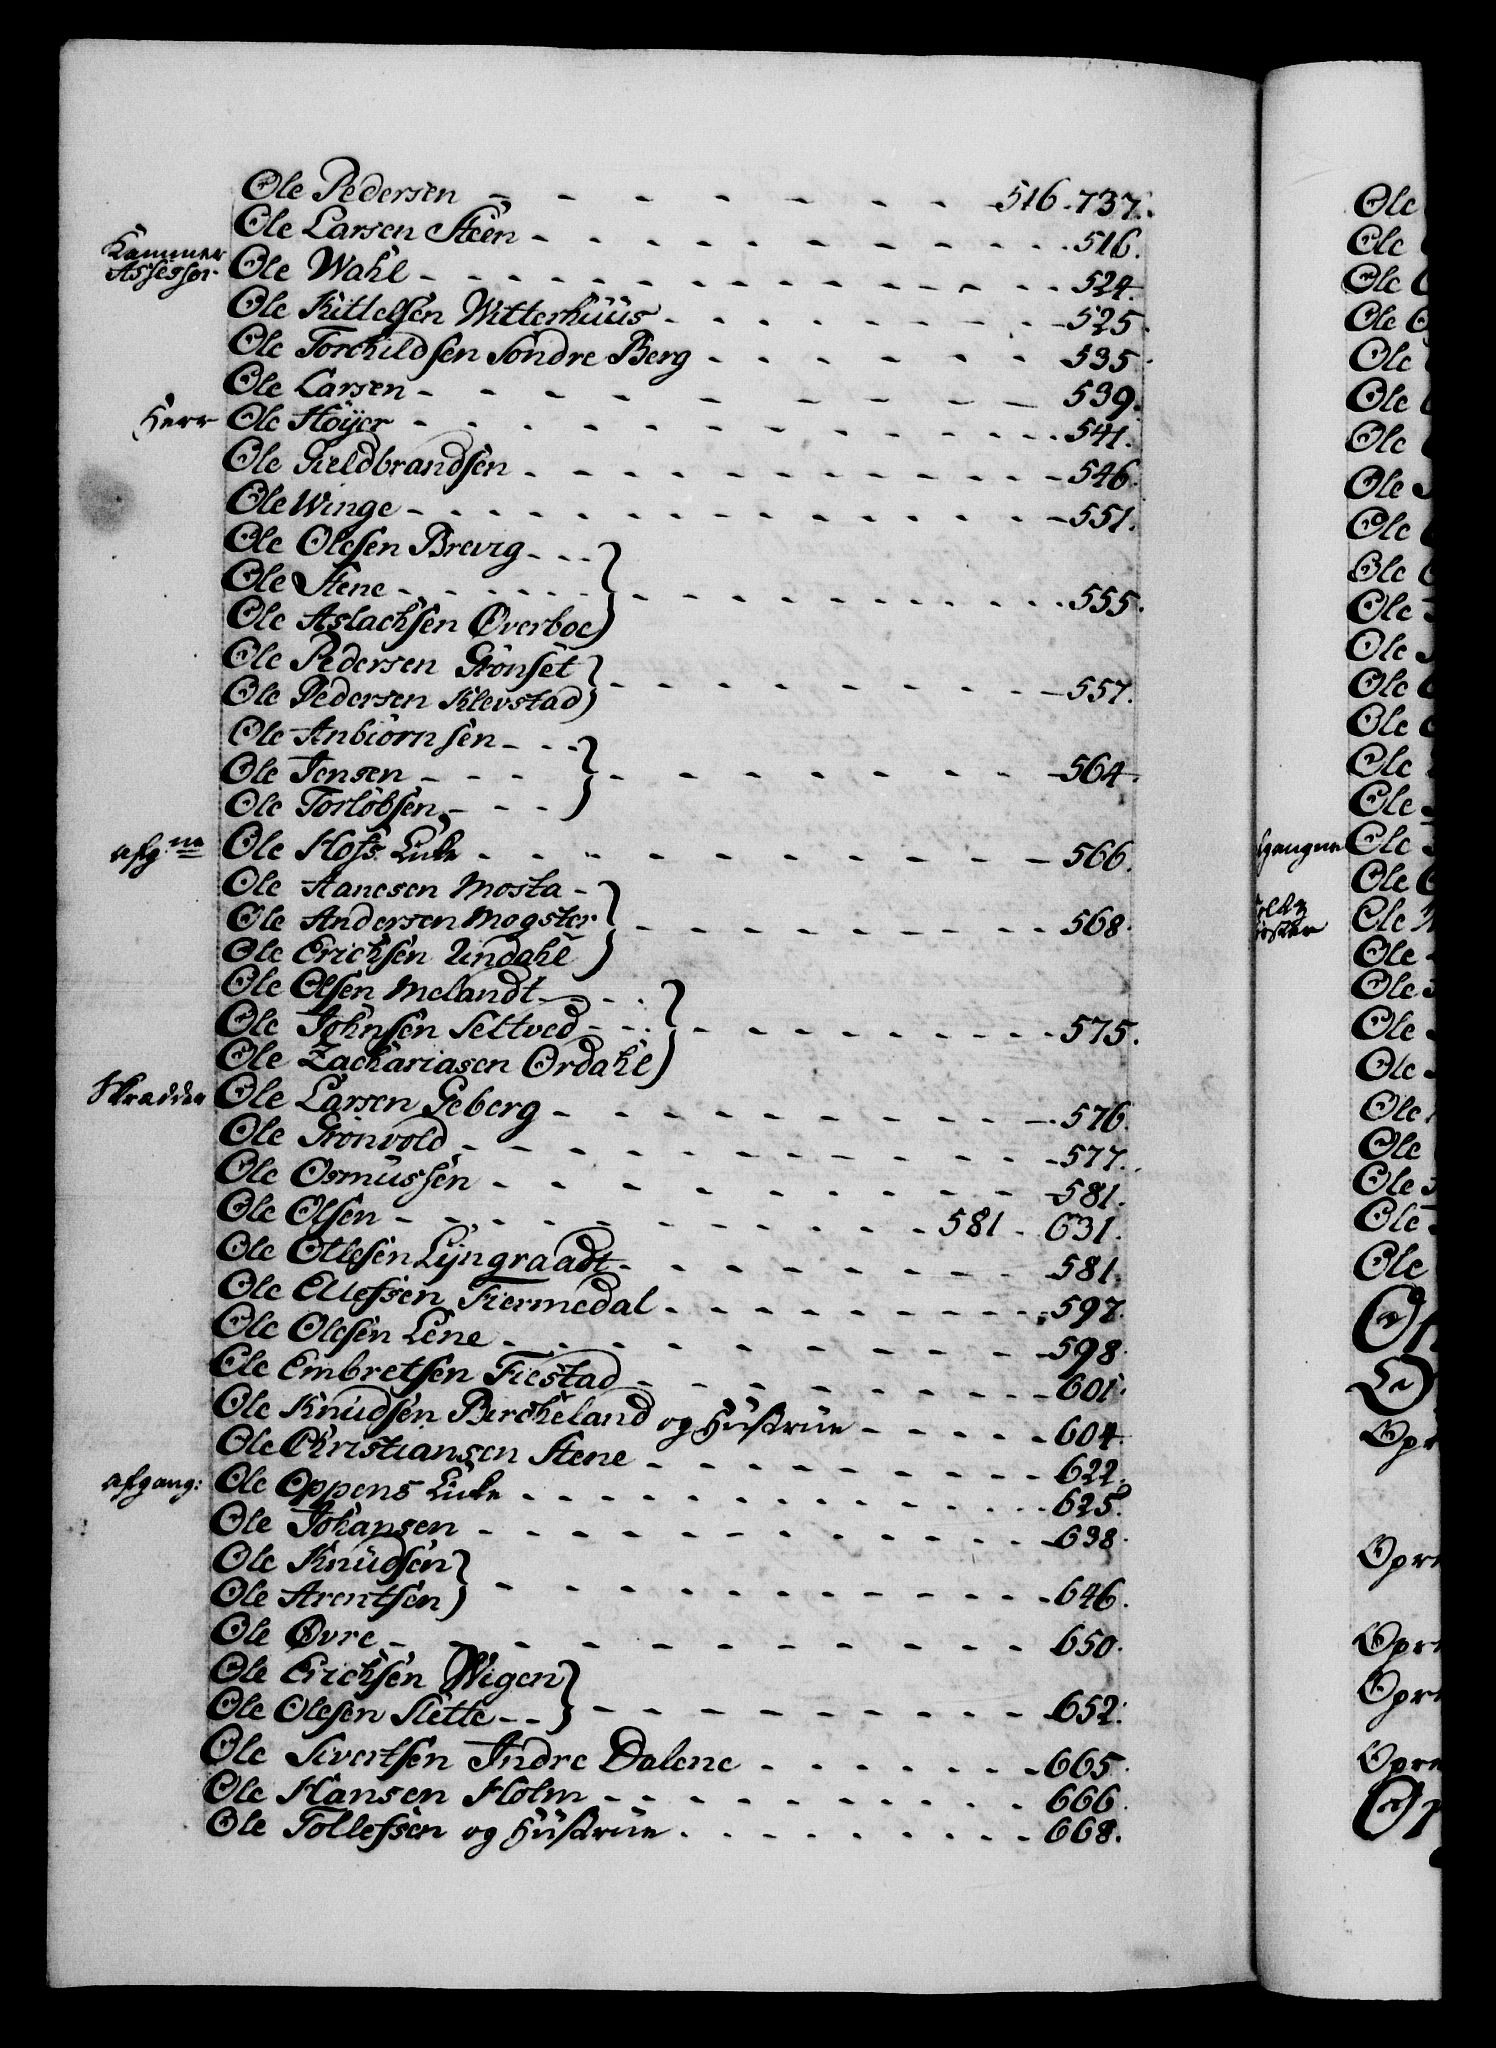 Ole Pedersen - - - - - - - - 516. 737.
Ole Larsen Steen - - - - - - - - 516.
Kammer Assessor Ole Wahl - - - - - - - - 524.
Ole Kittelsen Witterhuus - - - - - - - - 525.
Ole Torchildsen Söndre Berg - - - - - - 535.
Ole Larsen - - - - - - - - 539.
Herr Ole Höÿer - - - - - - - - 541.
Ole Gieldbrandsen - - - - - - - - 546.
Ole Winge - - - - - - - - 551.
Ole Olesen Brevig - - -
Ole Stene - - - - - - } - - - - - - - - 555.
Ole Aslachsen Øverboe
Ole Pedersen Grönset } - - - - - - - - 557.
Ole Pedersen Klevstad
Ole Anbiörnsen - - -
Ole Jensen - - - - } - - - - - - - - 564.
Ole Torlöbsen - - -
afg.ne Ole Hofs Enke - - - - - - - - 566.
Ole Hanesen Mosta -
Ole Andersen Mogster } - - - - - - - - 568.
Ole Erichsen Undahl
Ole Olsen Melandt - - -
Ole Johnsen Settved - - - } - - - - - - - - 575.
Ole Zachariasen Ordahl
Skrædder Ole Larsen Geberg - - - - - - - - 576.
Ole Grönvold - - - - - - - - 577.
Ole Osmussen - - - - - - - - 581.
Ole Olsen - - - - - - - - 581. 631.
Ole Ottesen Lÿngraadt - - - - - - - - 581.
Ole Ellefsen Fiermedal - - - - - - - - 597.
Ole Olesen Lene - - - - - - - - 598.
Ole Embretsen Fiestad - - - - - - - - 601.
Ole Knudsen Bircheland og Hustrue - - - - - 604.
Ole Christiansen Stene - - - - - - - - 622.
afgang: Ole Oppens Enke - - - - - - - - 625.
Ole Johansen - - - - - - - - 638.
Ole Knudsen } - - - - - - - - 646.
Ole Arentsen
Ole Øvre - - - - - - - - 650.
Ole Erichsen Wigen } - - - - - - - - 652.
Ole Olesen Slette - -
Ole Sivertsen Indre Dalene - - - - - - - 665.
Ole Hansen Holm - - - - - - - - 666.
Ole Tollefsen og Hustrue - - - - - - - - 668.